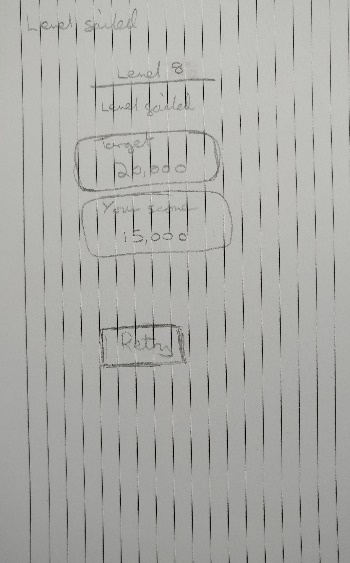 Level failed
Level 8
Level failed
Target
20,000
Your score
15,000
Retry